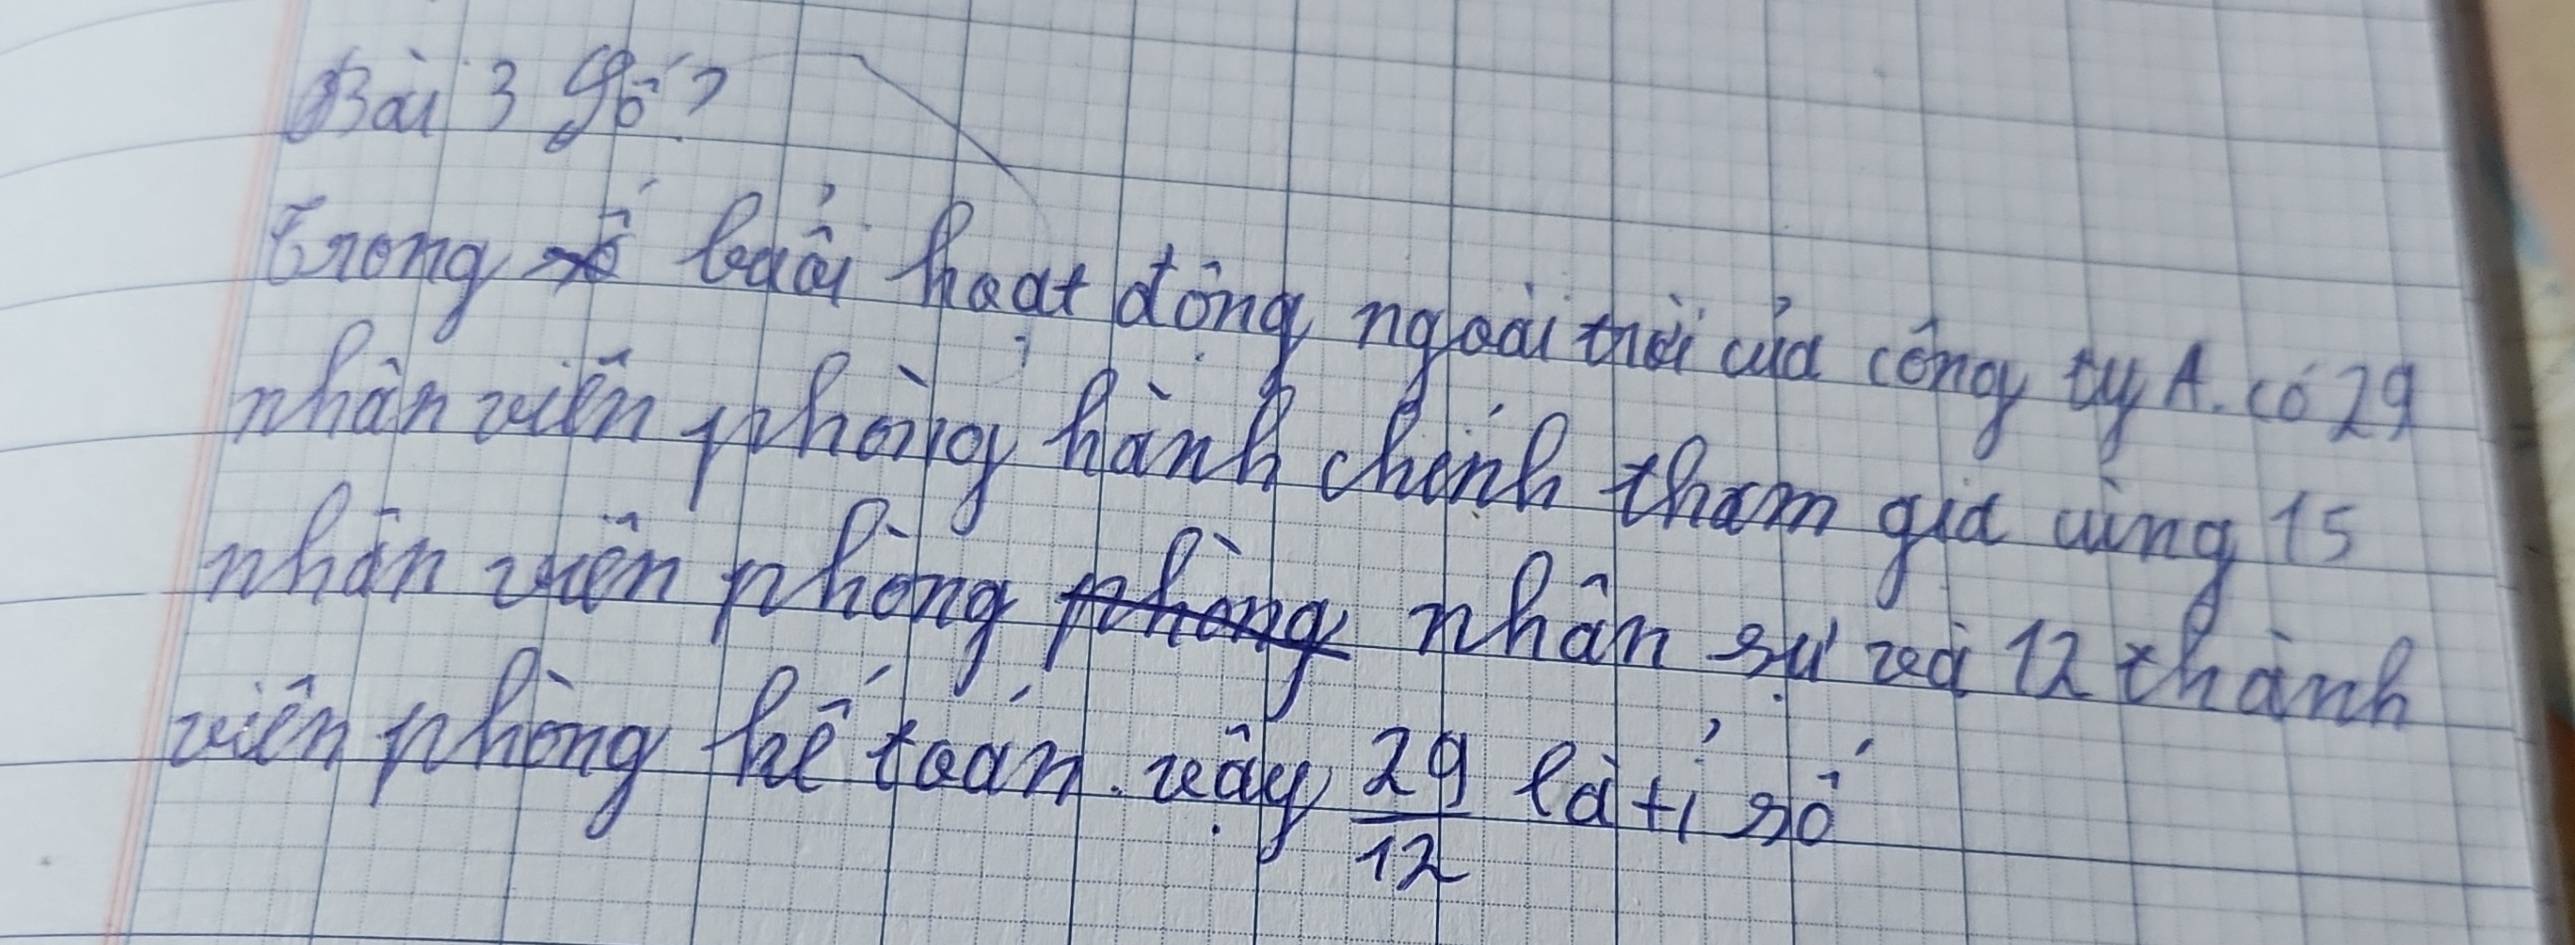 Bài 3 Số?
Trong buổi hoạt động ngoài trời của công ty A. có 29
nhân viên phòng hành chính tham gia cùng 15
nhân viên phòng phòng nhân sự và 12 thành
viên phòng kế toán. vậy 29/12 là tỉ số